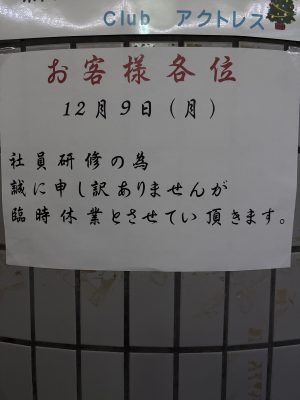 Club アクトレス
お客様各位
12月9日(月)
社員研修の為
誠に申し訳ありませんが
臨時休業とさせてい頂きます。